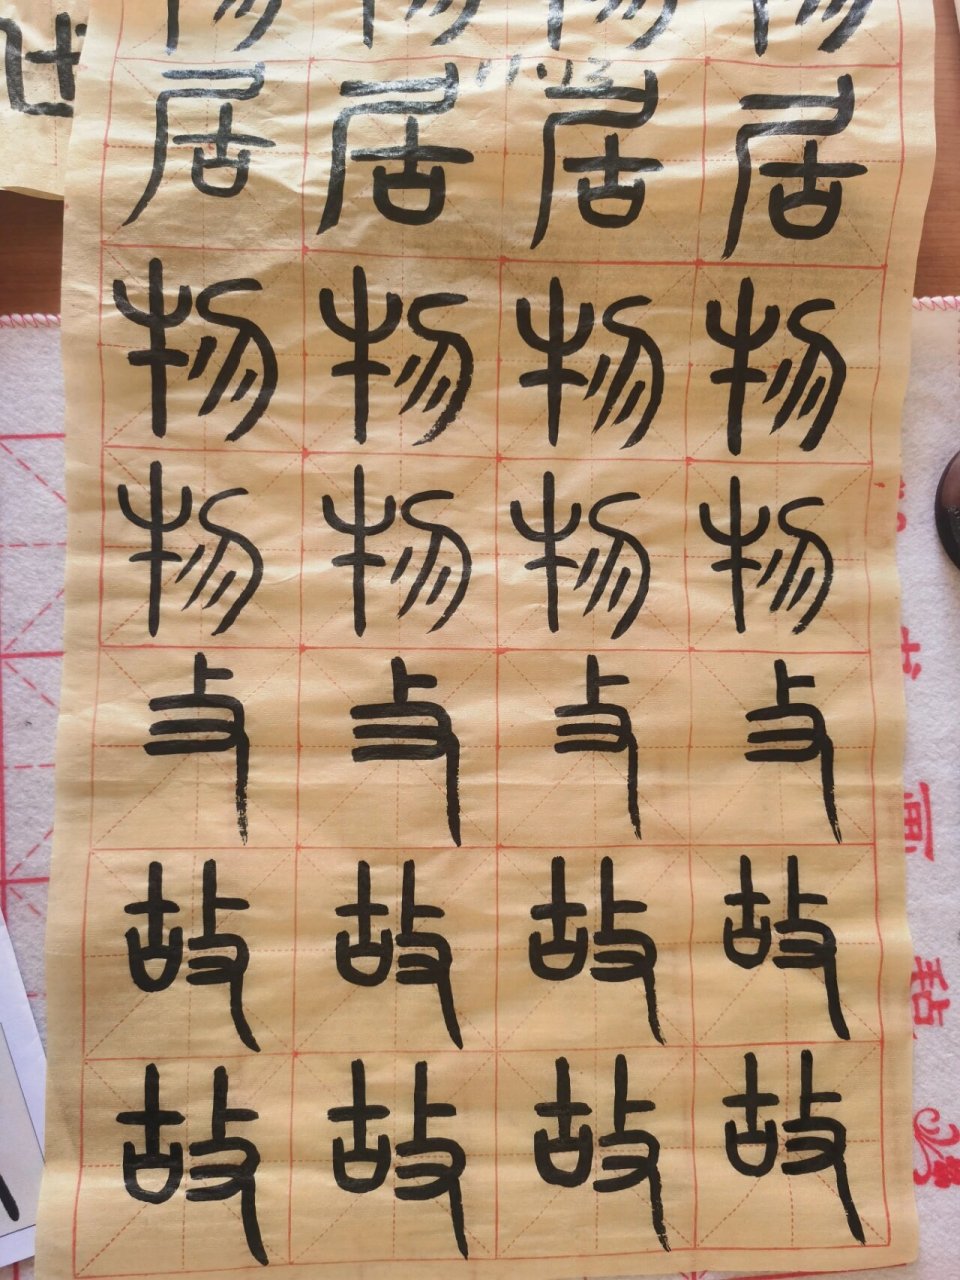 居居居居
物物物物
物物物物
攴攴攴攴
故故故故
故故故故